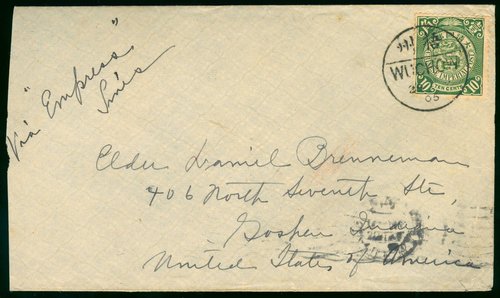 Via "Empress"
州 梧
WUCHOW
05
10 TEN CENTS 10
Elder Daniel Brenneman
406 North Seventh St,
Goshen Indiana
United States of America